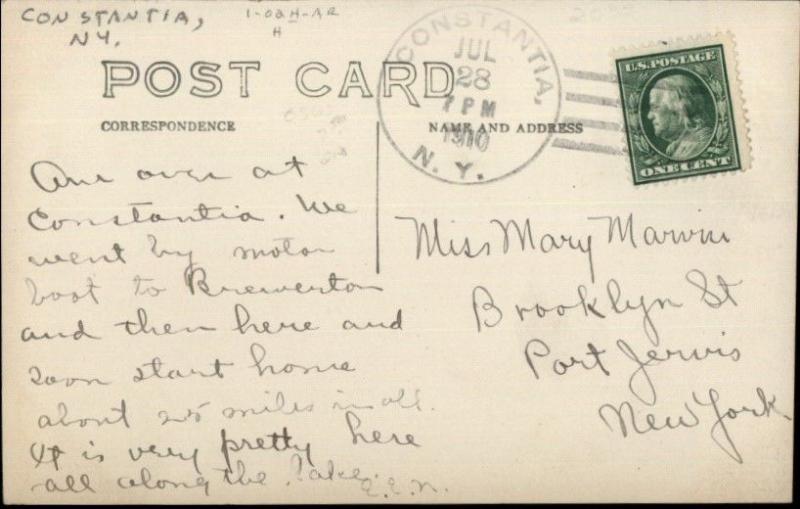 CONSTANTIA,
NY.
1-02H-AR
H
POST CARD
CONSTANTIA,
JUL
28
7 PM
1910
N. Y.
U.S. POSTAGE
ONE CENT
CORRESPONDENCE
NAME AND ADDRESS
Are over at
Constantia. We
went by motor
boat to Brewerton
and then here and
soon start home
about 25 miles in all.
It is very pretty here
all along the lake.
E.E.N.
Miss Mary Marvin
Brooklyn St
Port Jervis
New York